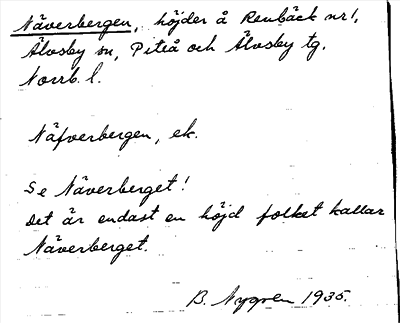 Näverbergen, höjder å Renbäck nr 1,
Älvsby sn, Piteå och Älvsby tg.
Norrb. l.
Näfverbergen, ek.
Se Näverberget!
Det är endast en höjd folket kallar
Näverberget.
B. Nygren 1935.